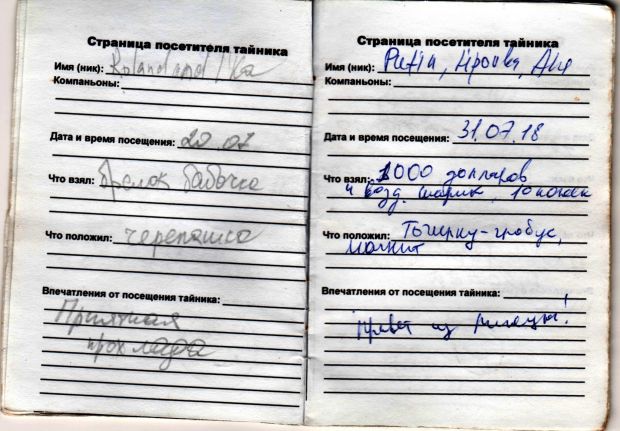 Страница посетителя тайника
Имя (ник): Roland and Vka
Компаньоны:
Дата и время посещения: 20.07
Что взял: Брелок бабочка
Что положил: черепашка
Впечатления от посещения тайника:
Приятная
прохлада
Страница посетителя тайника
Имя (ник):
Компаньоны:
Дата и время посещения: 31.07.18
Что взял: 1000 долларов
и возд. шарик, 10 копеек
Что положил: Точилку-глобус,
магнит
Впечатления от посещения тайника:
Привет из !